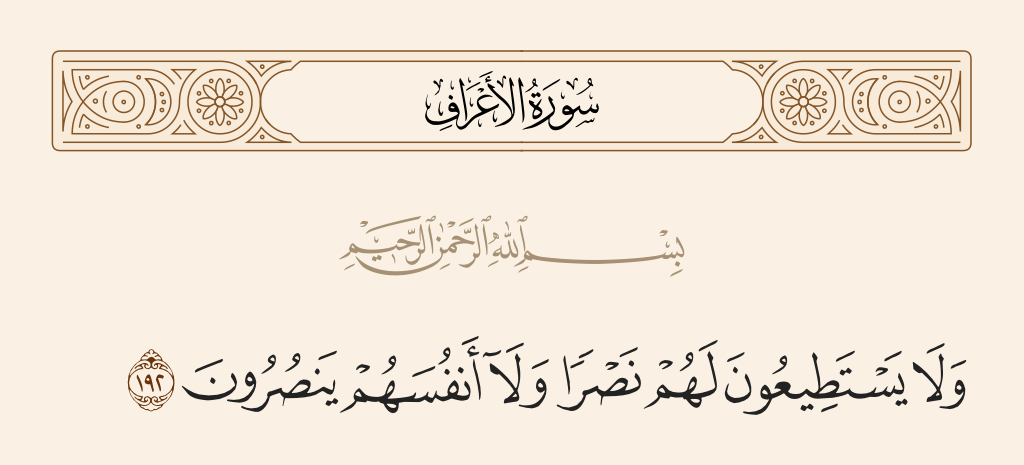 سُورَةُ الأَعْرَافِ
بِسْمِ ٱللَّهِ ٱلرَّحْمَٰنِ ٱلرَّحِيمِ
وَلَا يَسْتَطِيعُونَ لَهُمْ نَصْرًا وَلَآ أَنفُسَهُمْ يَنصُرُونَ ١٩٢